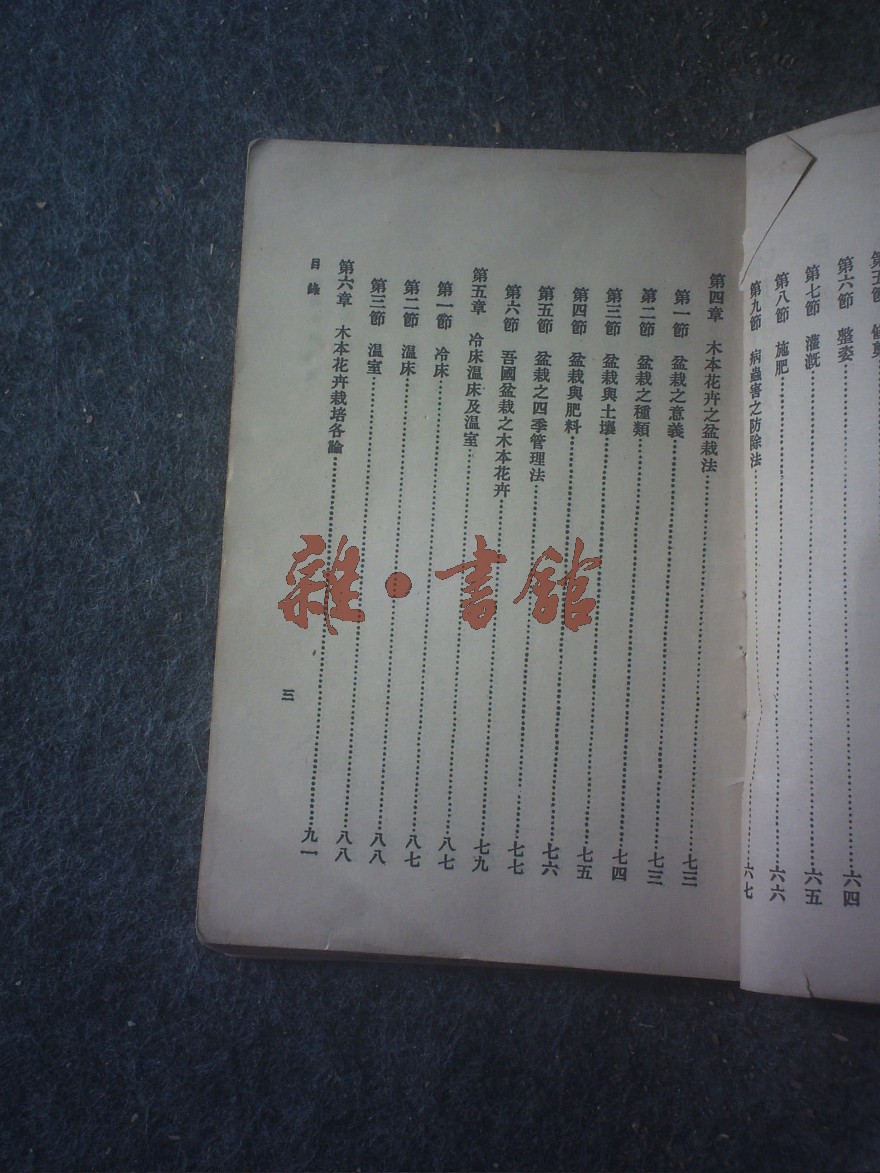 第六節 整姿……六四
第七節 灌溉……六五
第八節 施肥……六六
第九節 病蟲害之防除法……六七
第四章 木本花卉之盆栽法……七三
第一節 盆栽之意義……七三
第二節 盆栽之種類……七四
第三節 盆栽與土壤……七五
第四節 盆栽與肥料……七六
第五節 盆栽之四季管理法……七七
第六節 吾國盆栽之木本花卉……七九
第五章 冷床温床及温室……八七
第一節 冷床……八七
第二節 温床……八八
第三節 温室……八八
第六章 木本花卉栽培各論……九一
目錄
三
雜·書館